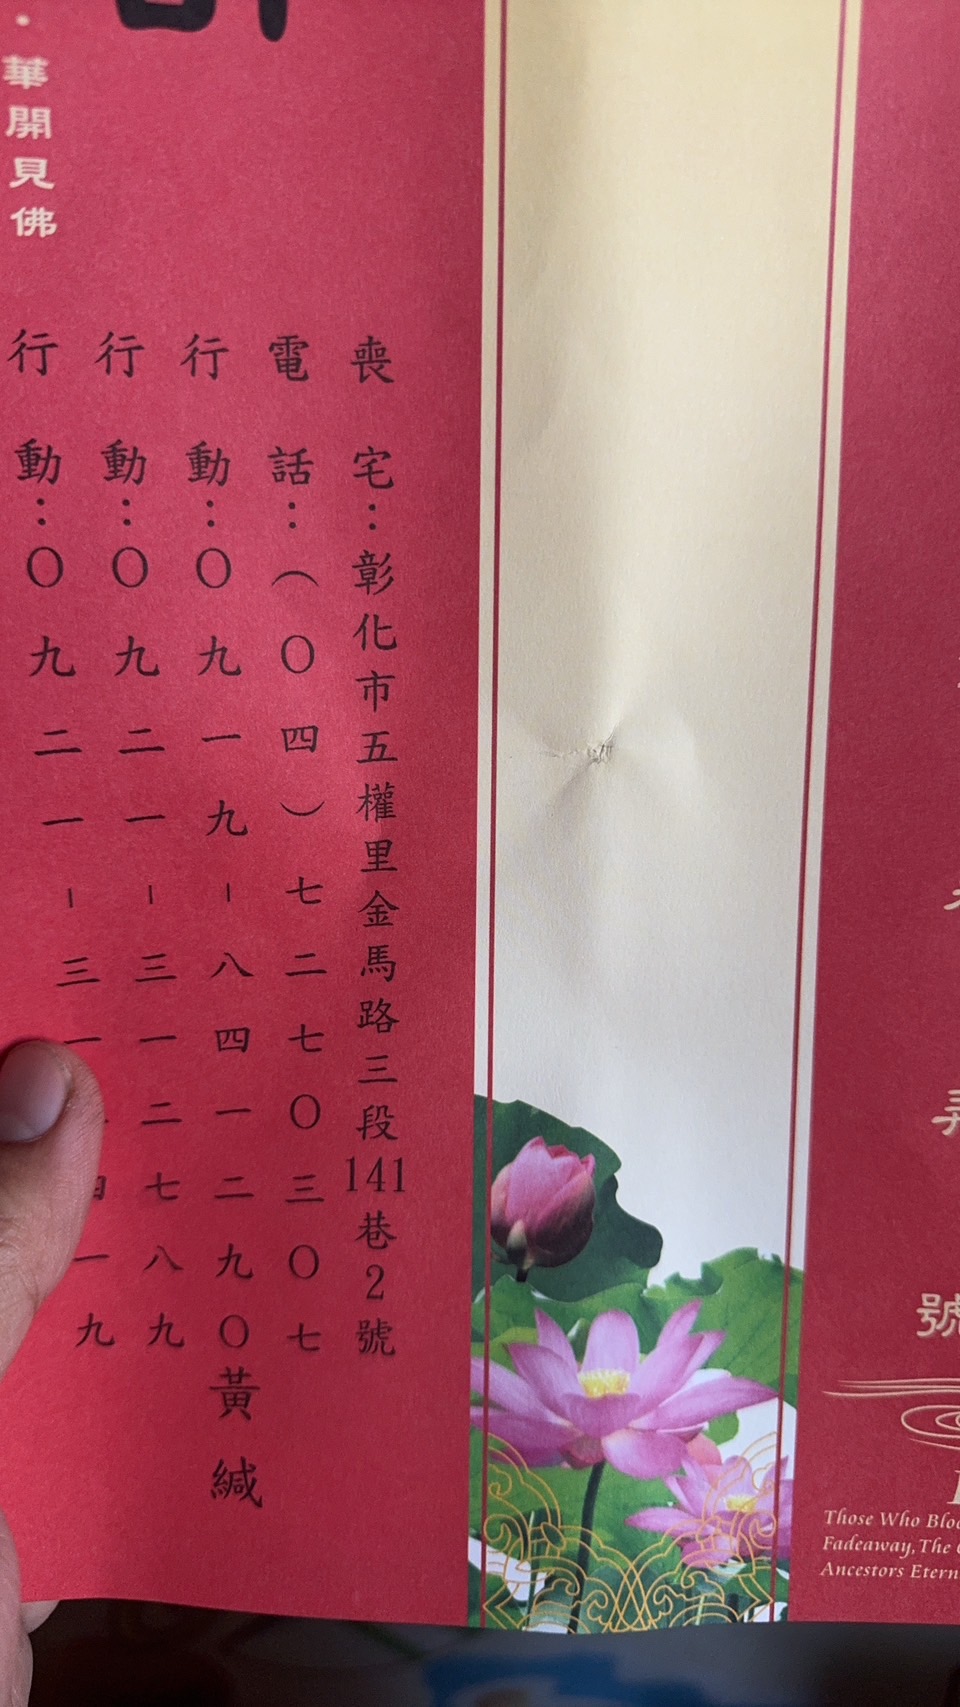 號
Those Who
Fadeaway, The
Ancestors
喪宅：彰化市五權里金馬路三段141巷2號
電話：（〇四）七二七〇三〇七
行動：〇九一九－八四一二九〇黃緘
行動：〇九二一－三一二七八九
行動：〇九二一－三一一九
・華開見佛